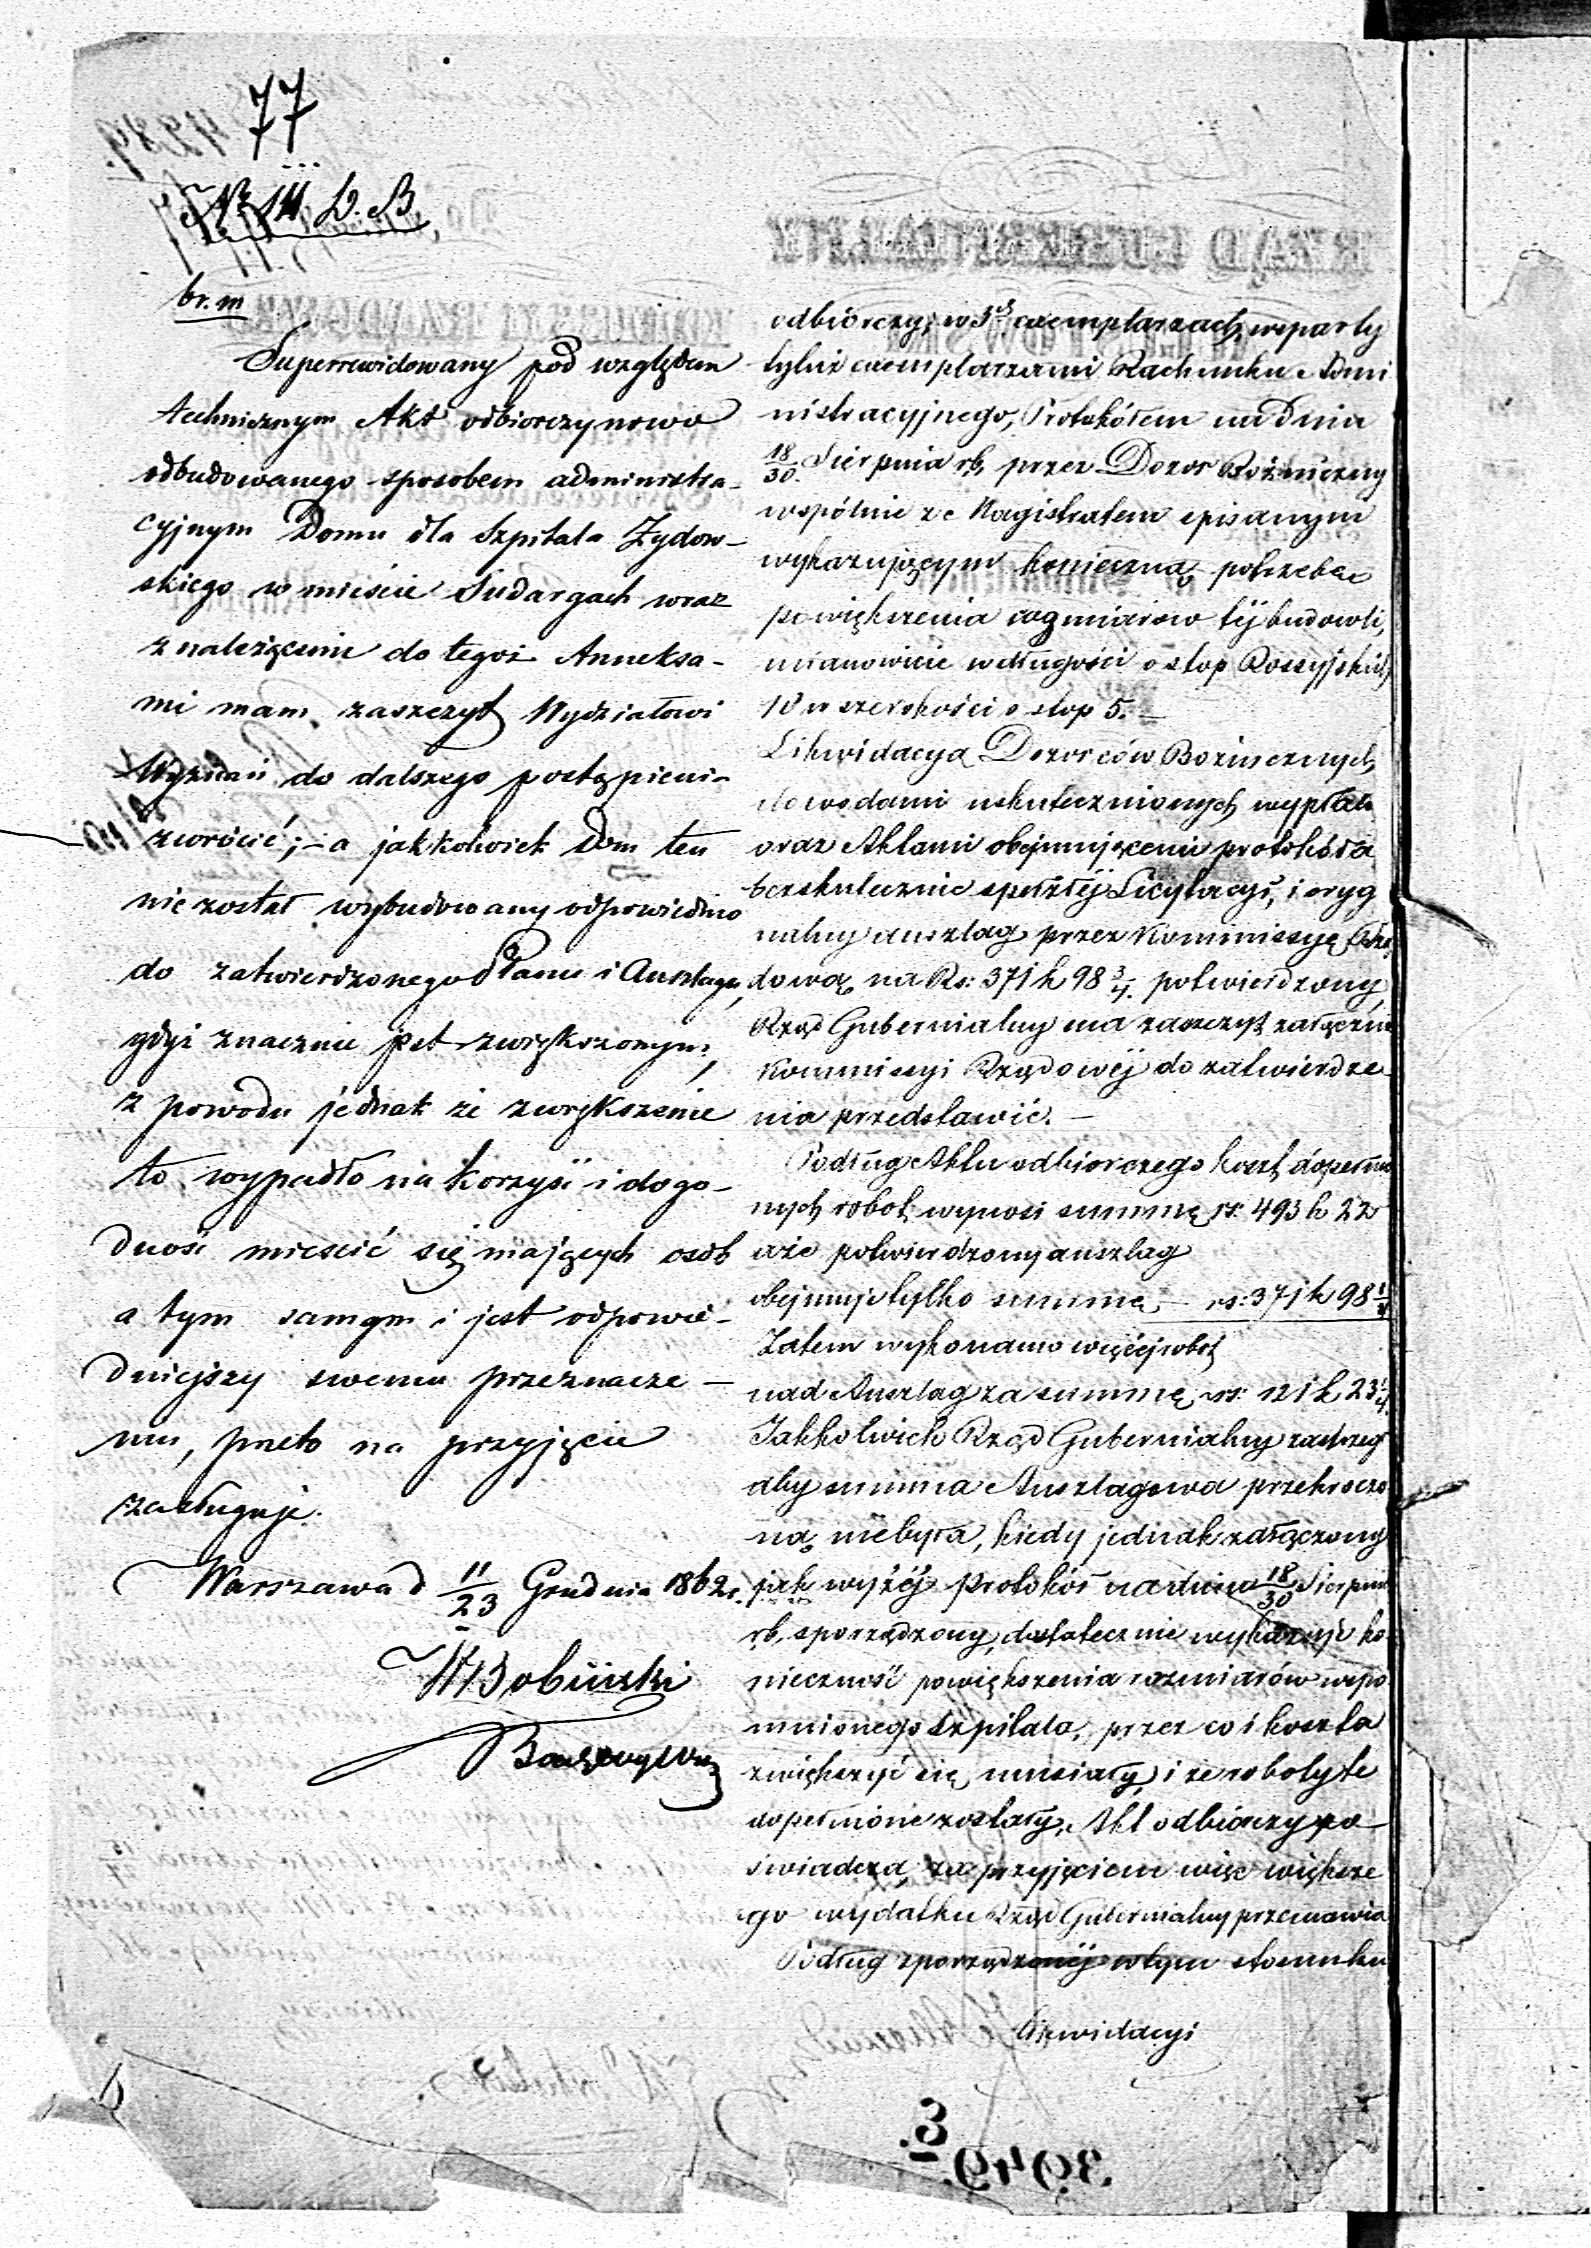 77
br. m
Superrewidowany pod względem
technicznym Akt odbiorczy nowo
odbudowanego sposobem administra-
cyjnym Domu dla Szpitala Żydow-
skiego w mieście Sudargach wraz
z należącemi do tegoż Anneksa-
mi mam zaszczyt Wydziałowi
Wyznań do dalszego postąpieni-
zwrócić; - a jakkolwiek Dom ten
nie został wybudowany odpowiednio
do zatwierdzonego Planu i Anszlagu,
gdyż znacznie jest zwiększonym,
z powodu jednak że zwiększenie
to wypadło na korzyść i dogo-
dność mieścić się mających osób
a tym samym i jest odpowie-
dniejszy swemu przeznacze-
niu, przeto na przyjęcie
zasługuje.
Warszawa d 11/23 Grudnia 1862 r.
odbiorczy, w 3ch exemplarzach, wsparty
tyluż exemplarzami Rachunku Admi
nistracyjnego, Protokółem na dniu
18/30 Sierpnia rb, przez Dozor Bożniczny
wspólnie ze Magistratem spisanym
wykazującym konieczną potrzebę
powiększenia rozmiarów tej budowli,
mianowicie w długości o stop Rossyjskich
10 w szerokości o stop 5. –
Likwidacya Dozorców Bożnicznych
dowodami uskutecznionych wypłat
oraz Aktami obejmującemi protokóła
bezskutecznie spełzłej Licytacyi, i oryg
nalny anszlag przez Kommissyę Rzą
dową na Rs: 371 k 98 3/4. potwierdzony,
Rząd Gubernialny ma zaszczyt załącznie
Kommissyi Rządowej do zatwierdze
nia przedstawić. –
Podług Aktu odbiorczego koszt dopełnio
nych robot wynosi summę rs. 493 k 22
a że potwierdzony anszlag
obejmuje tylko summę – rs: 371 k 98 3/4
Zatem wykonano więcej robot
nad Anszlag za summę rs: 121 k 23 1/4.
Jakkolwiek Rząd Gubernialny zastrzegł
aby summa Anszlagowa przekroczo
ną niebyła, kiedy jednak załączony
jak wyżej Protokół na dniu 18/30 Sierpnia
rb. sporządzony, dostatecznie wykazuje ko
nieczność powiększenia rozmiarów wspo
mnionego Szpitala, przez co i koszta
zwiększyć się musiały, i że roboty te
dopełnione zostały, Akt odbiorczy po
świadcza, za przyjęciem więc większe
go wydatku Rząd Gubernialny przemawia
Podług sporządzonej w tym stosunku
Likwidacyi
3949